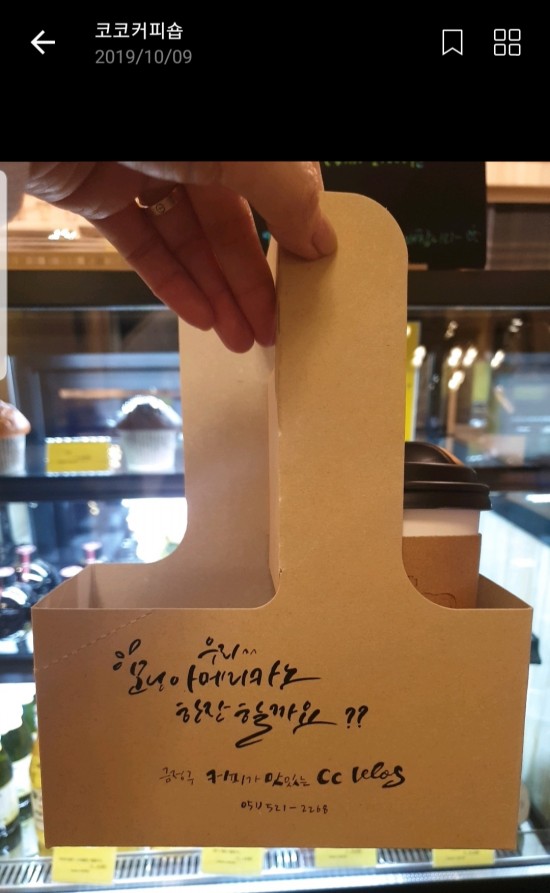 코코커피숍
2019/10/09
우리^^
모닝아메리카노
한잔 할까요??
금정구 커피가 맛있는 CC Vlog
051) 521-2268